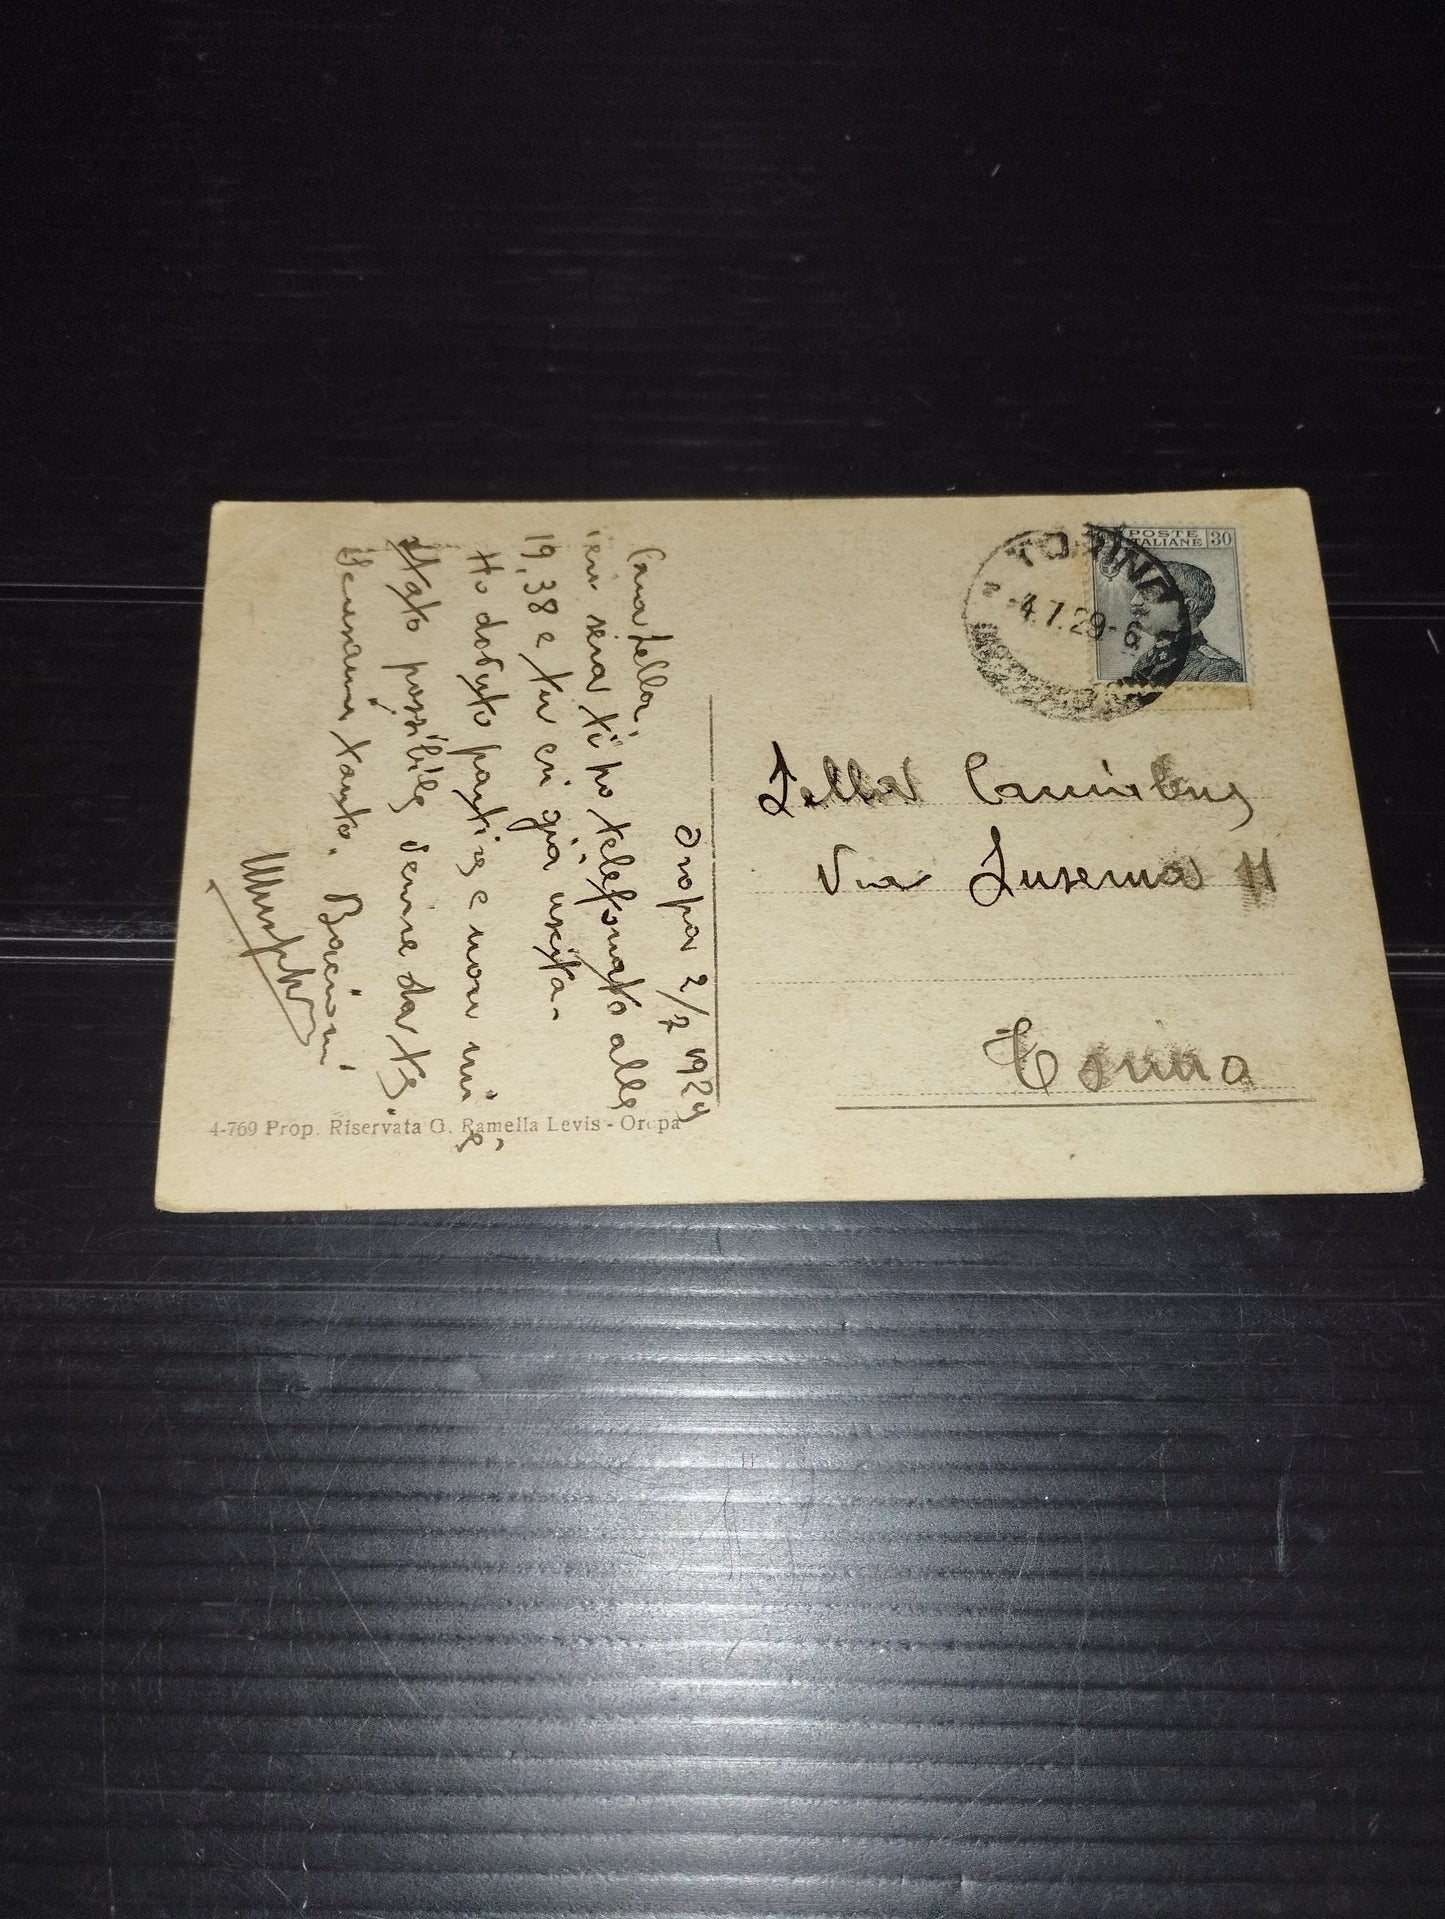 Oropa 2/7 1929
Cara Lella,
ieri sera ti ho telefonato alle
19,38 e tu eri già uscita.
Ho dovuto partire e non mi è
stato possibile venire da te.
Scusami tanto. Bacioni
4-769 Prop. Riservata G. Ramella Levis - Oropa
POSTE
ITALIANE 30
TORINO
4.7.29-6
Lella
Via Luserna 11
Torino